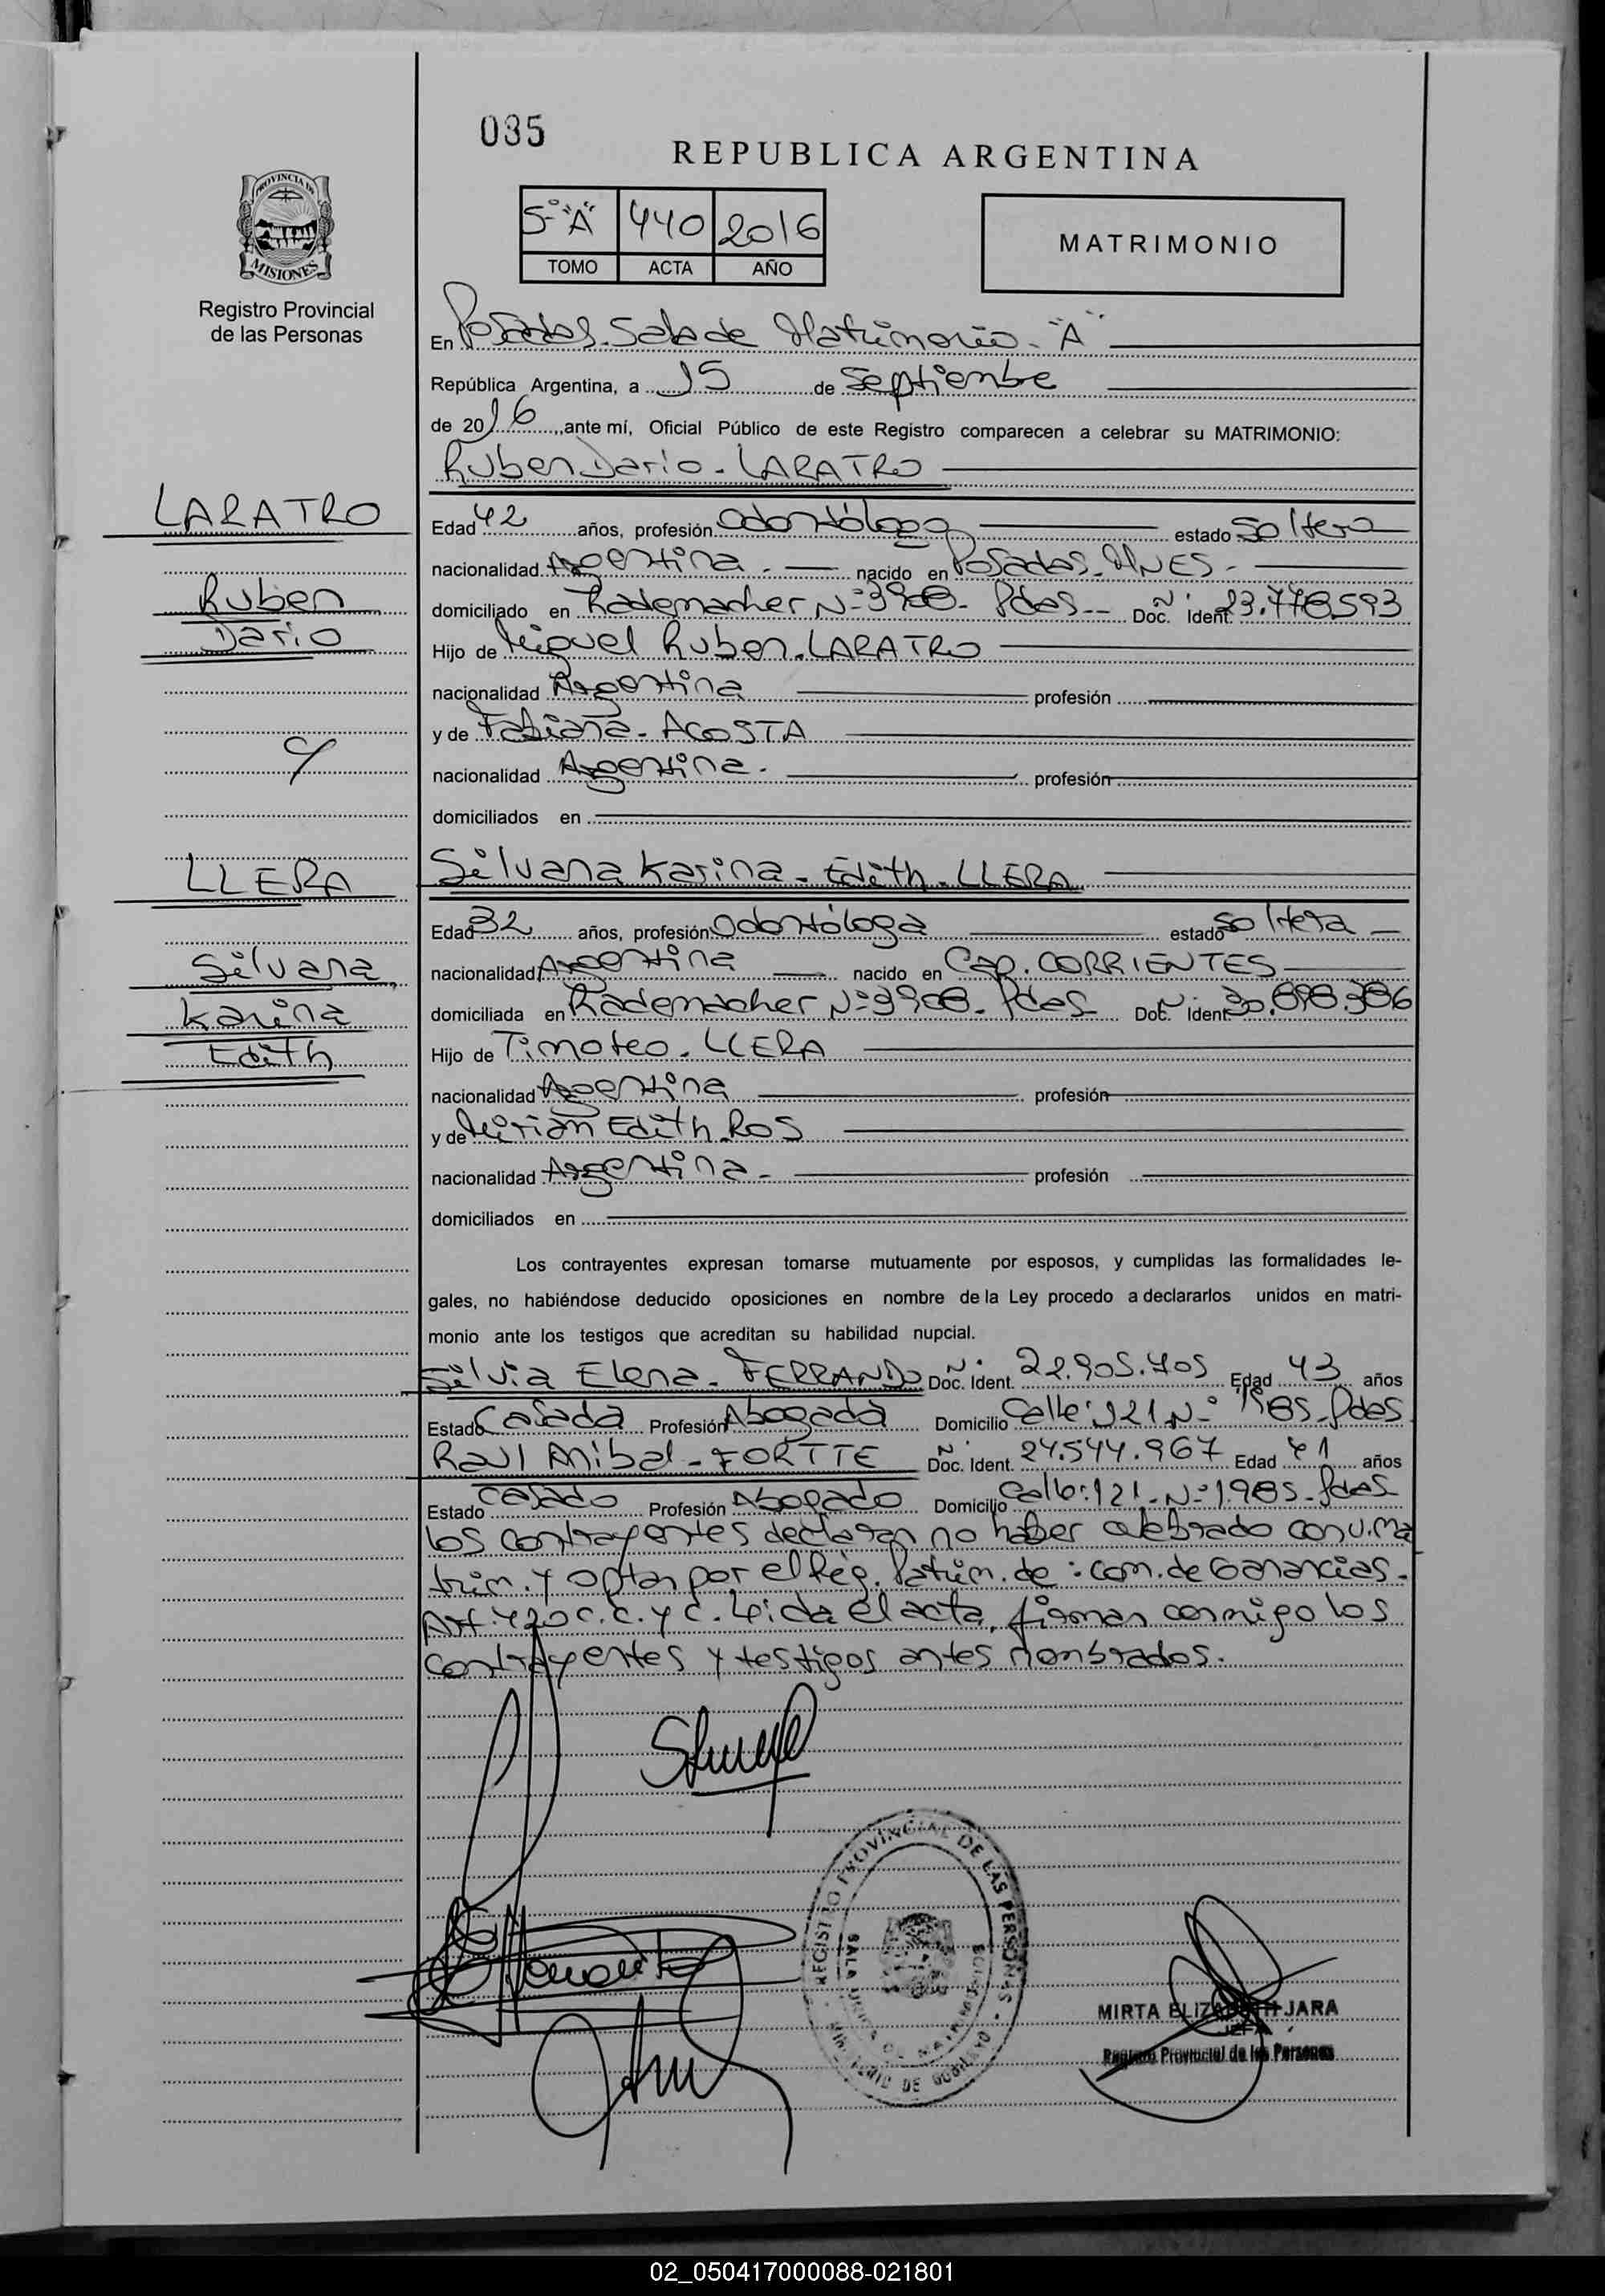 035
REPUBLICA ARGENTINA
5-° "A" 440 2016
TOMO ACTA AÑO
MATRIMONIO
PROVINCIA DE
MISIONES
Registro Provincial
de las Personas
En Posadas. Sala de Matrimonio. "A"
República Argentina, a 15 de Septiembre
de 2016, ante mí, Oficial Público de este Registro comparecen a celebrar su MATRIMONIO:
Ruben Dario - LARATRO
LARATRO
Ruben
Dario
Edad 42 años, profesión Odontólogo estado Soltero
nacionalidad Argentina. nacido en Posadas. MNES.
domiciliado en Rademacher N° 3908. Pdas-- Doc. Ident. 23.778.593
Hijo de Miguel Ruben. LARATRO
nacionalidad Argentina profesión
y de Fabiana - ACOSTA
y
nacionalidad Argentina. profesión
domiciliados en
LLERA
Silvana
Karina
Edith
Silvana Karina - Edith. LLERA
Edad 32 años, profesión Odontóloga estado Soltera
nacionalidad Argentina nacido en Cap. CORRIENTES
domiciliada en Rademacher N° 3908. Pdas Doc. Ident. 30.898.386
Hijo de Timoteo. LLERA
nacionalidad Argentina profesión
y de Mirian Edith. ROS
nacionalidad Argentina - profesión
domiciliados en
Los contrayentes expresan tomarse mutuamente por esposos, y cumplidas las formalidades le-
gales, no habiéndose deducido oposiciones en nombre de la Ley procedo a declararlos unidos en matri-
monio ante los testigos que acreditan su habilidad nupcial.
Silvia Elena - FERRANDO Doc. Ident. 22.905.705 Edad 43 años
Estado Casada Profesión Abogada Domicilio Calle: 121 N° 1985 - Pdas
Raul Anibal - FORTTE Doc. Ident. 24.544.967 Edad 41 años
Estado Casado Profesión Abogado Domicilio Calle: 121 - N° 1.985 - Pdas
los contrayentes declaran no haber celebrado conv. ma
trim. y optan por el Rég. Patrim. de: com. de Ganancias.
Art. 420 C.C. y C. Leida el acta, firman conmigo los
contrayentes y testigos antes nombrados.
REGISTRO PROVINCIAL DE LAS PERSONAS
MINISTERIO DE GOBIERNO
MIRTA ELIZABETH JARA
JEFA
Registro Provincial de las Personas
02_050417000088-021801